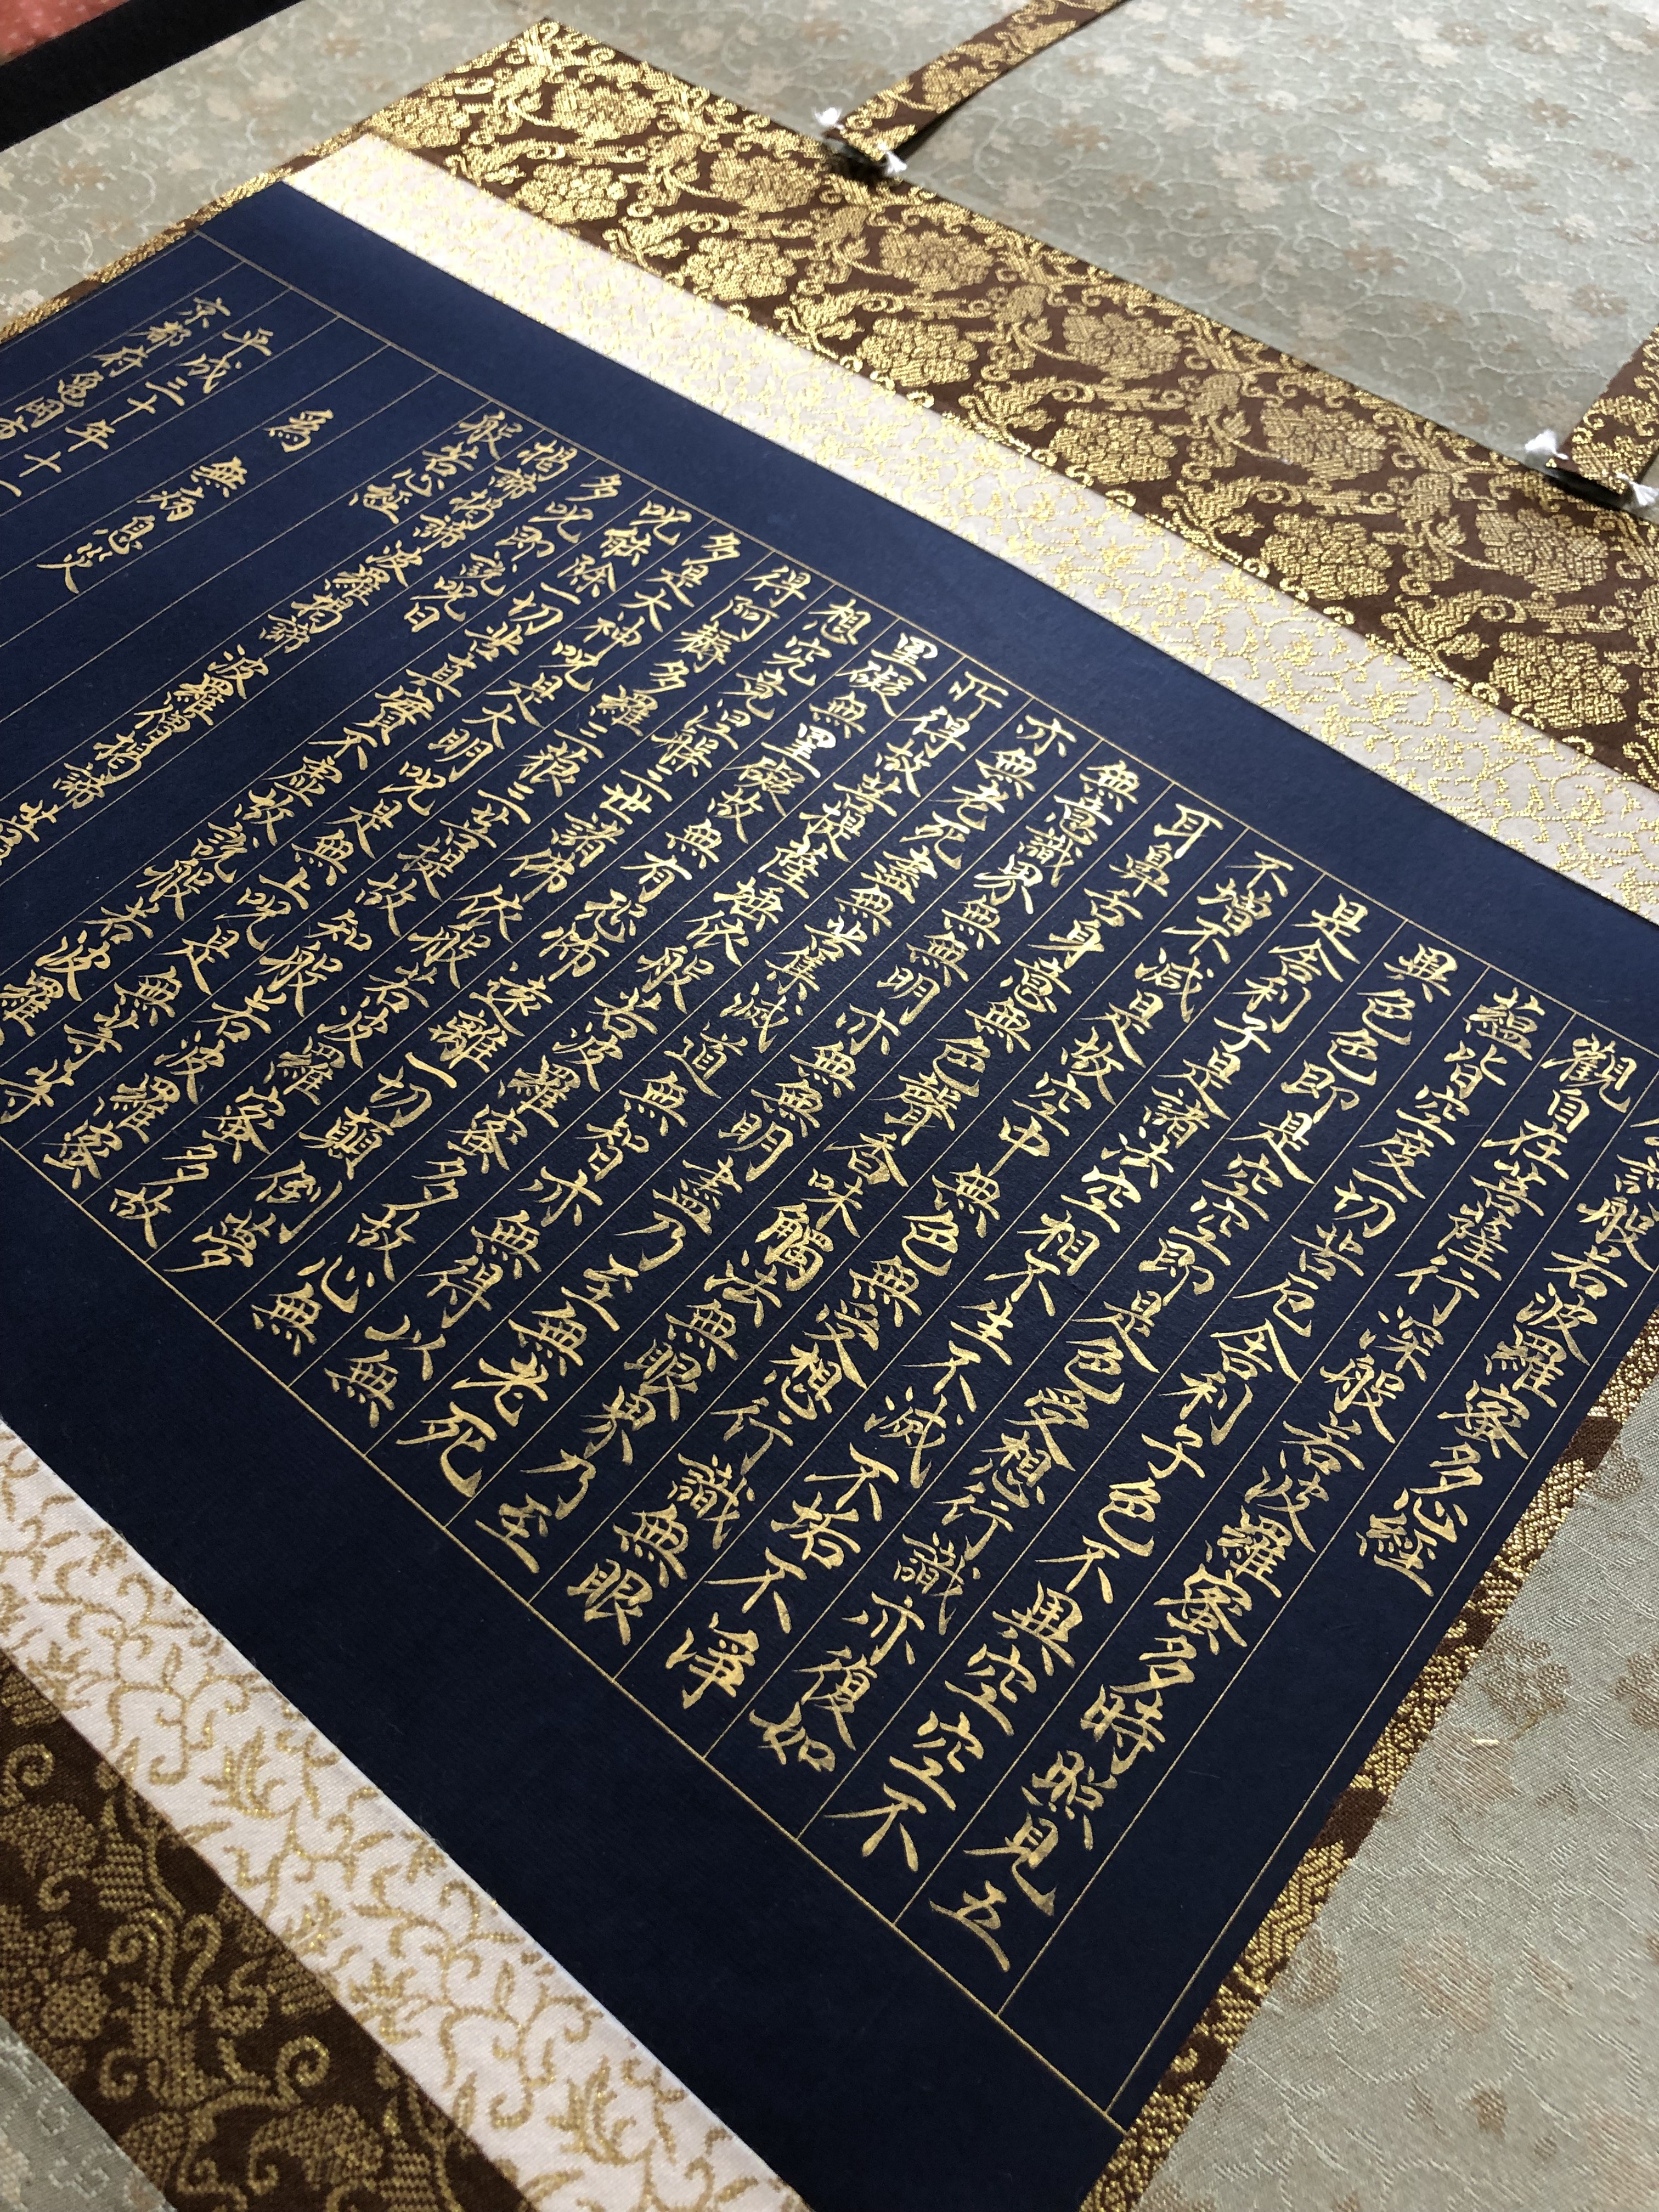 訶般若波羅蜜多心經
觀自在菩薩行深般若波羅蜜多時照見五
蘊皆空度一切苦厄舍利子色不異空空不
異色色即是空空即是色受想行識亦復如
是舍利子是諸法空相不生不滅不垢不淨
不增不減是故空中無色無受想行識無眼
耳鼻舌身意無色聲香味觸法無眼界乃至
無意識界無無明亦無無明盡乃至無老死
亦無老死盡無苦集滅道無智亦無得以無
所得故菩提薩埵依般若波羅蜜多故心無
罣礙無罣礙故無有恐怖遠離一切顛倒夢
想究竟涅槃三世諸佛依般若波羅蜜多故
得阿耨多羅三藐三菩提故知般若波羅蜜
多是大神呪是大明呪是無上呪是無等等
呪能除一切苦真實不虛故說般若波羅
多呪即說呪曰
揭諦揭諦 波羅揭諦 波羅僧揭諦 菩提
般若心經
為 無病息災
平成三十年十一
京都府亀岡市